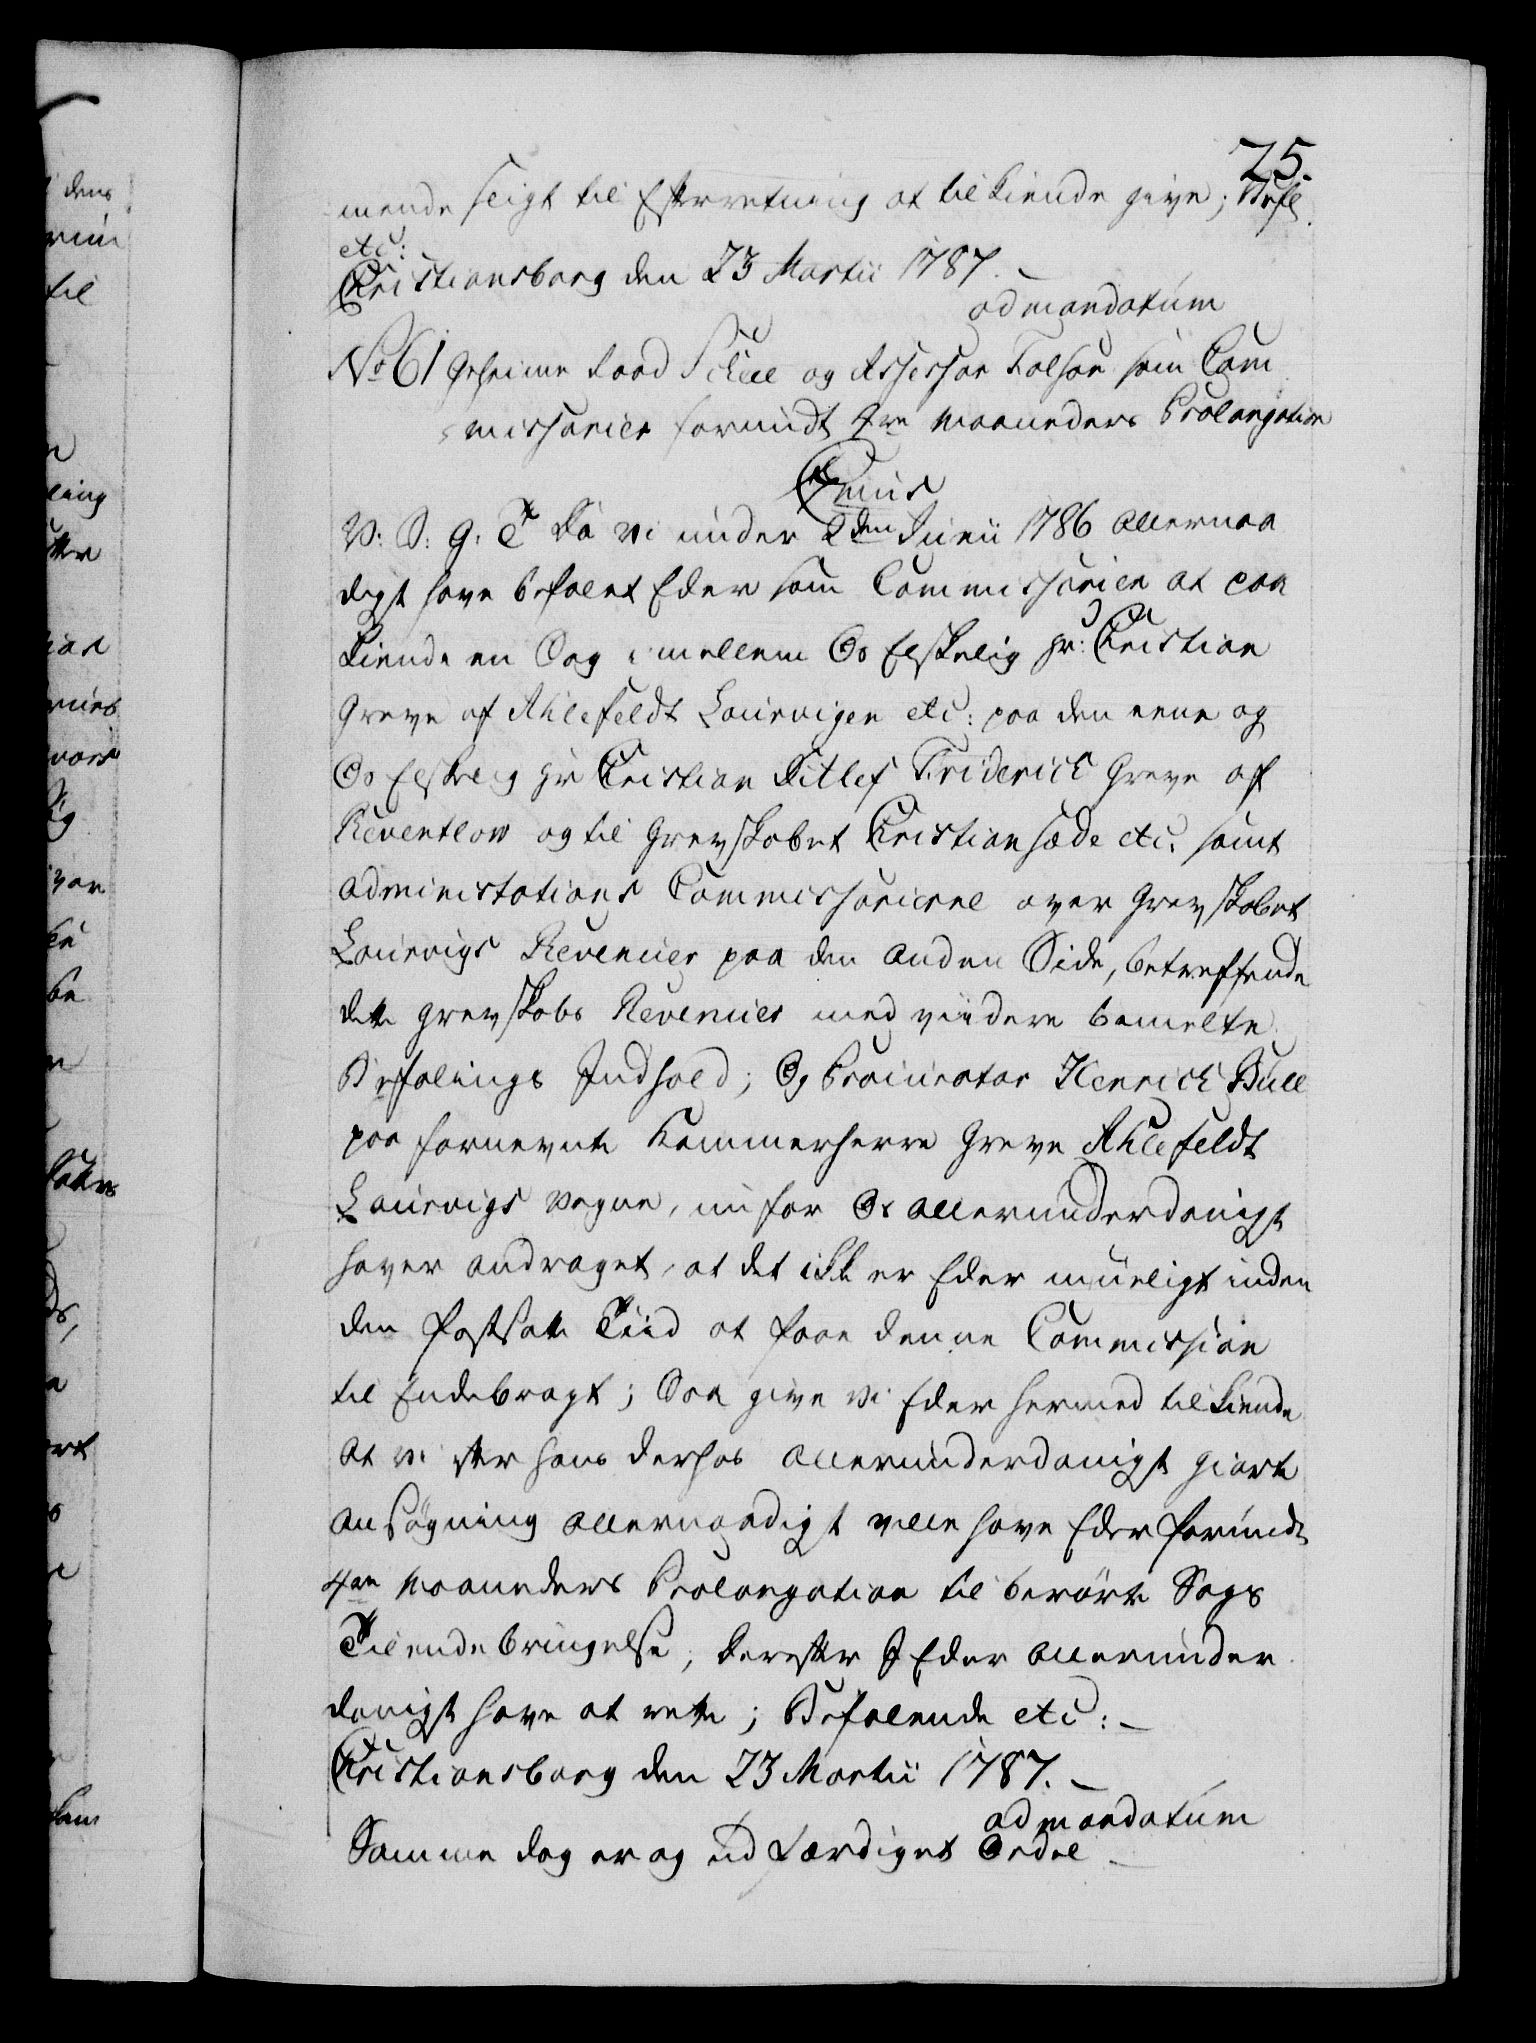 25.
mende sligt til Efterretning at tilkiende give; Befl
etc:
Christiansborg den 23 Martii 1787. –
ad mandatum
No 61 Geheime Raad Schiel og Assessor Falsen som Com
missarier forundt 4re Maaneders Prolongation
Cunis
V: S: G: T Da vi under 2den Junii 1786 allernaa
digst have befalet Eder som Commissarier at paa
kiende en Sag imellem Os Elskelig Hr: Christian
Greve af Ahlefeldt Laurvigen etc: paa den eene og
Os Elskelig Hr Christian Ditlef Friderich Greve af
Reventlow og til Grevskabet Christiansæde etc. samt
administrations Commissarierne over Grevskabet
Laurvigs Revenuer paa den anden Side, betreffende
dette Grevskabs Revenuer med viidere bemelte
Befalings Indhold; Og Procurator Henrich Bull
paa fornevnte Kammerherre Greve Ahlefeldt
Laurvigs vegne, nu for Os allerunderdanigst
haver andraget, at det ikke er Eder mueligt inden
den fastsatte Tiid at faae denne Commission
til Endebragt; Saa give vi Eder hermed tilkiende
At vi efter hans derhos allerunderdanigst giorte
Ansøgning allernaadigst ville have Eder forundt
4re Maaneders Prolongation til berørte Sags
Tilendebringelse, derefter I Eder allerunder
danigst have at rette; Befalende etc: –
Christiansborg den 23 Martii 1787. –
ad mandatum
Samme dag er og udfærdiget Ordre –